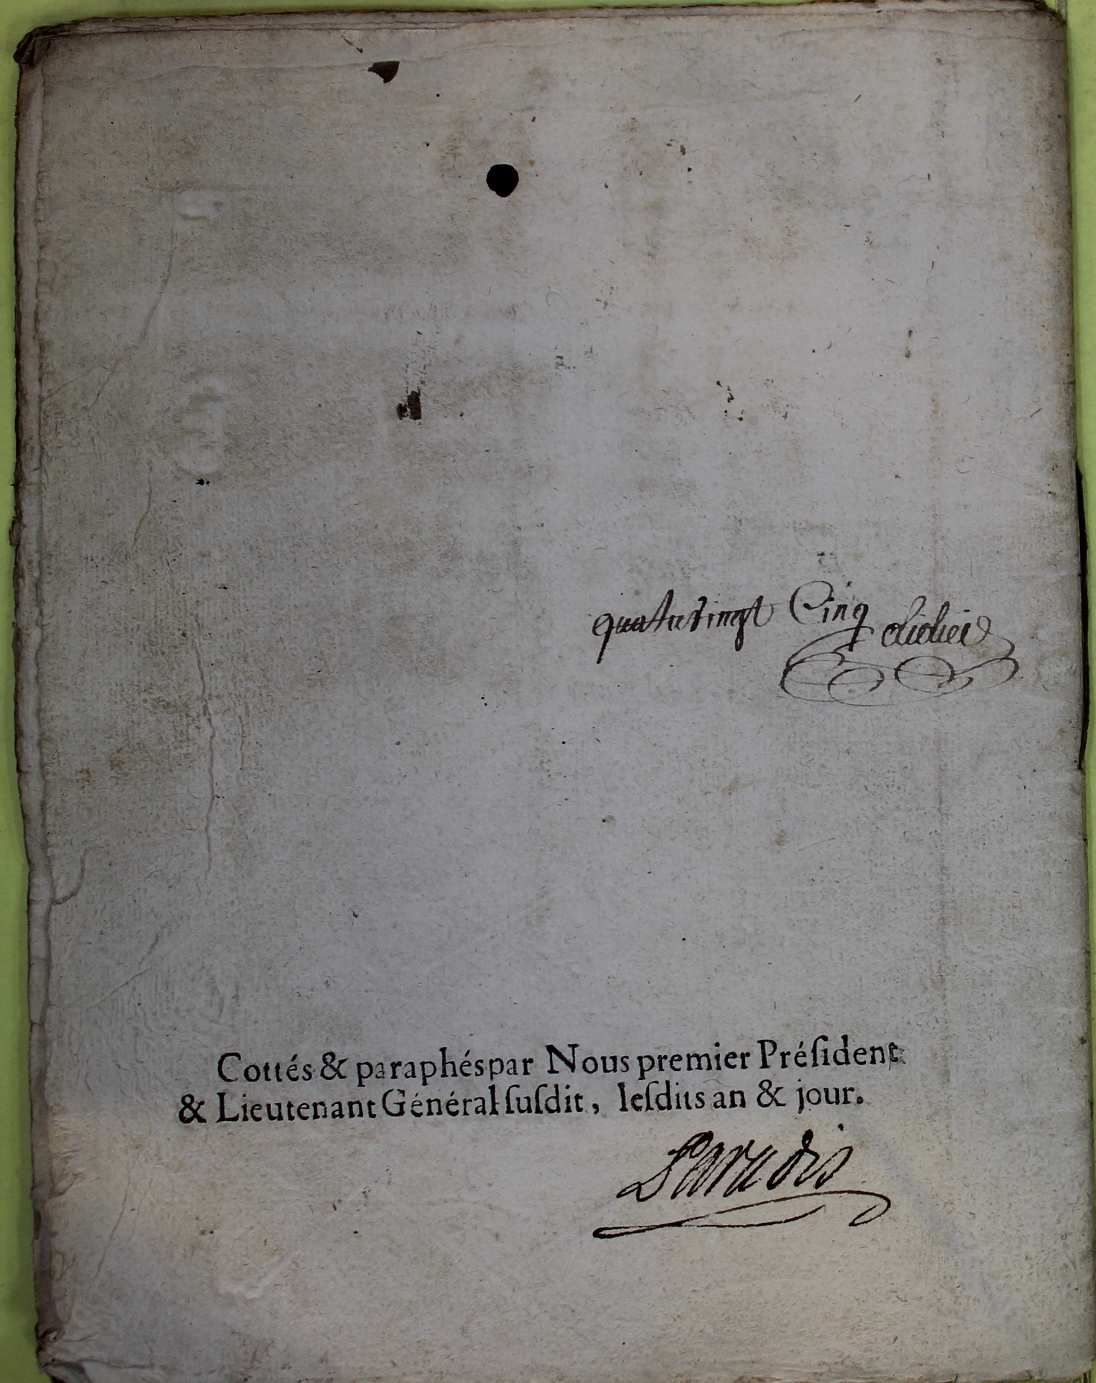 quatrevingt Cinq
Cottés & paraphés par Nous premier Préſident
& Lieutenant Général ſuſdit, leſdits an & jour.
Paradis